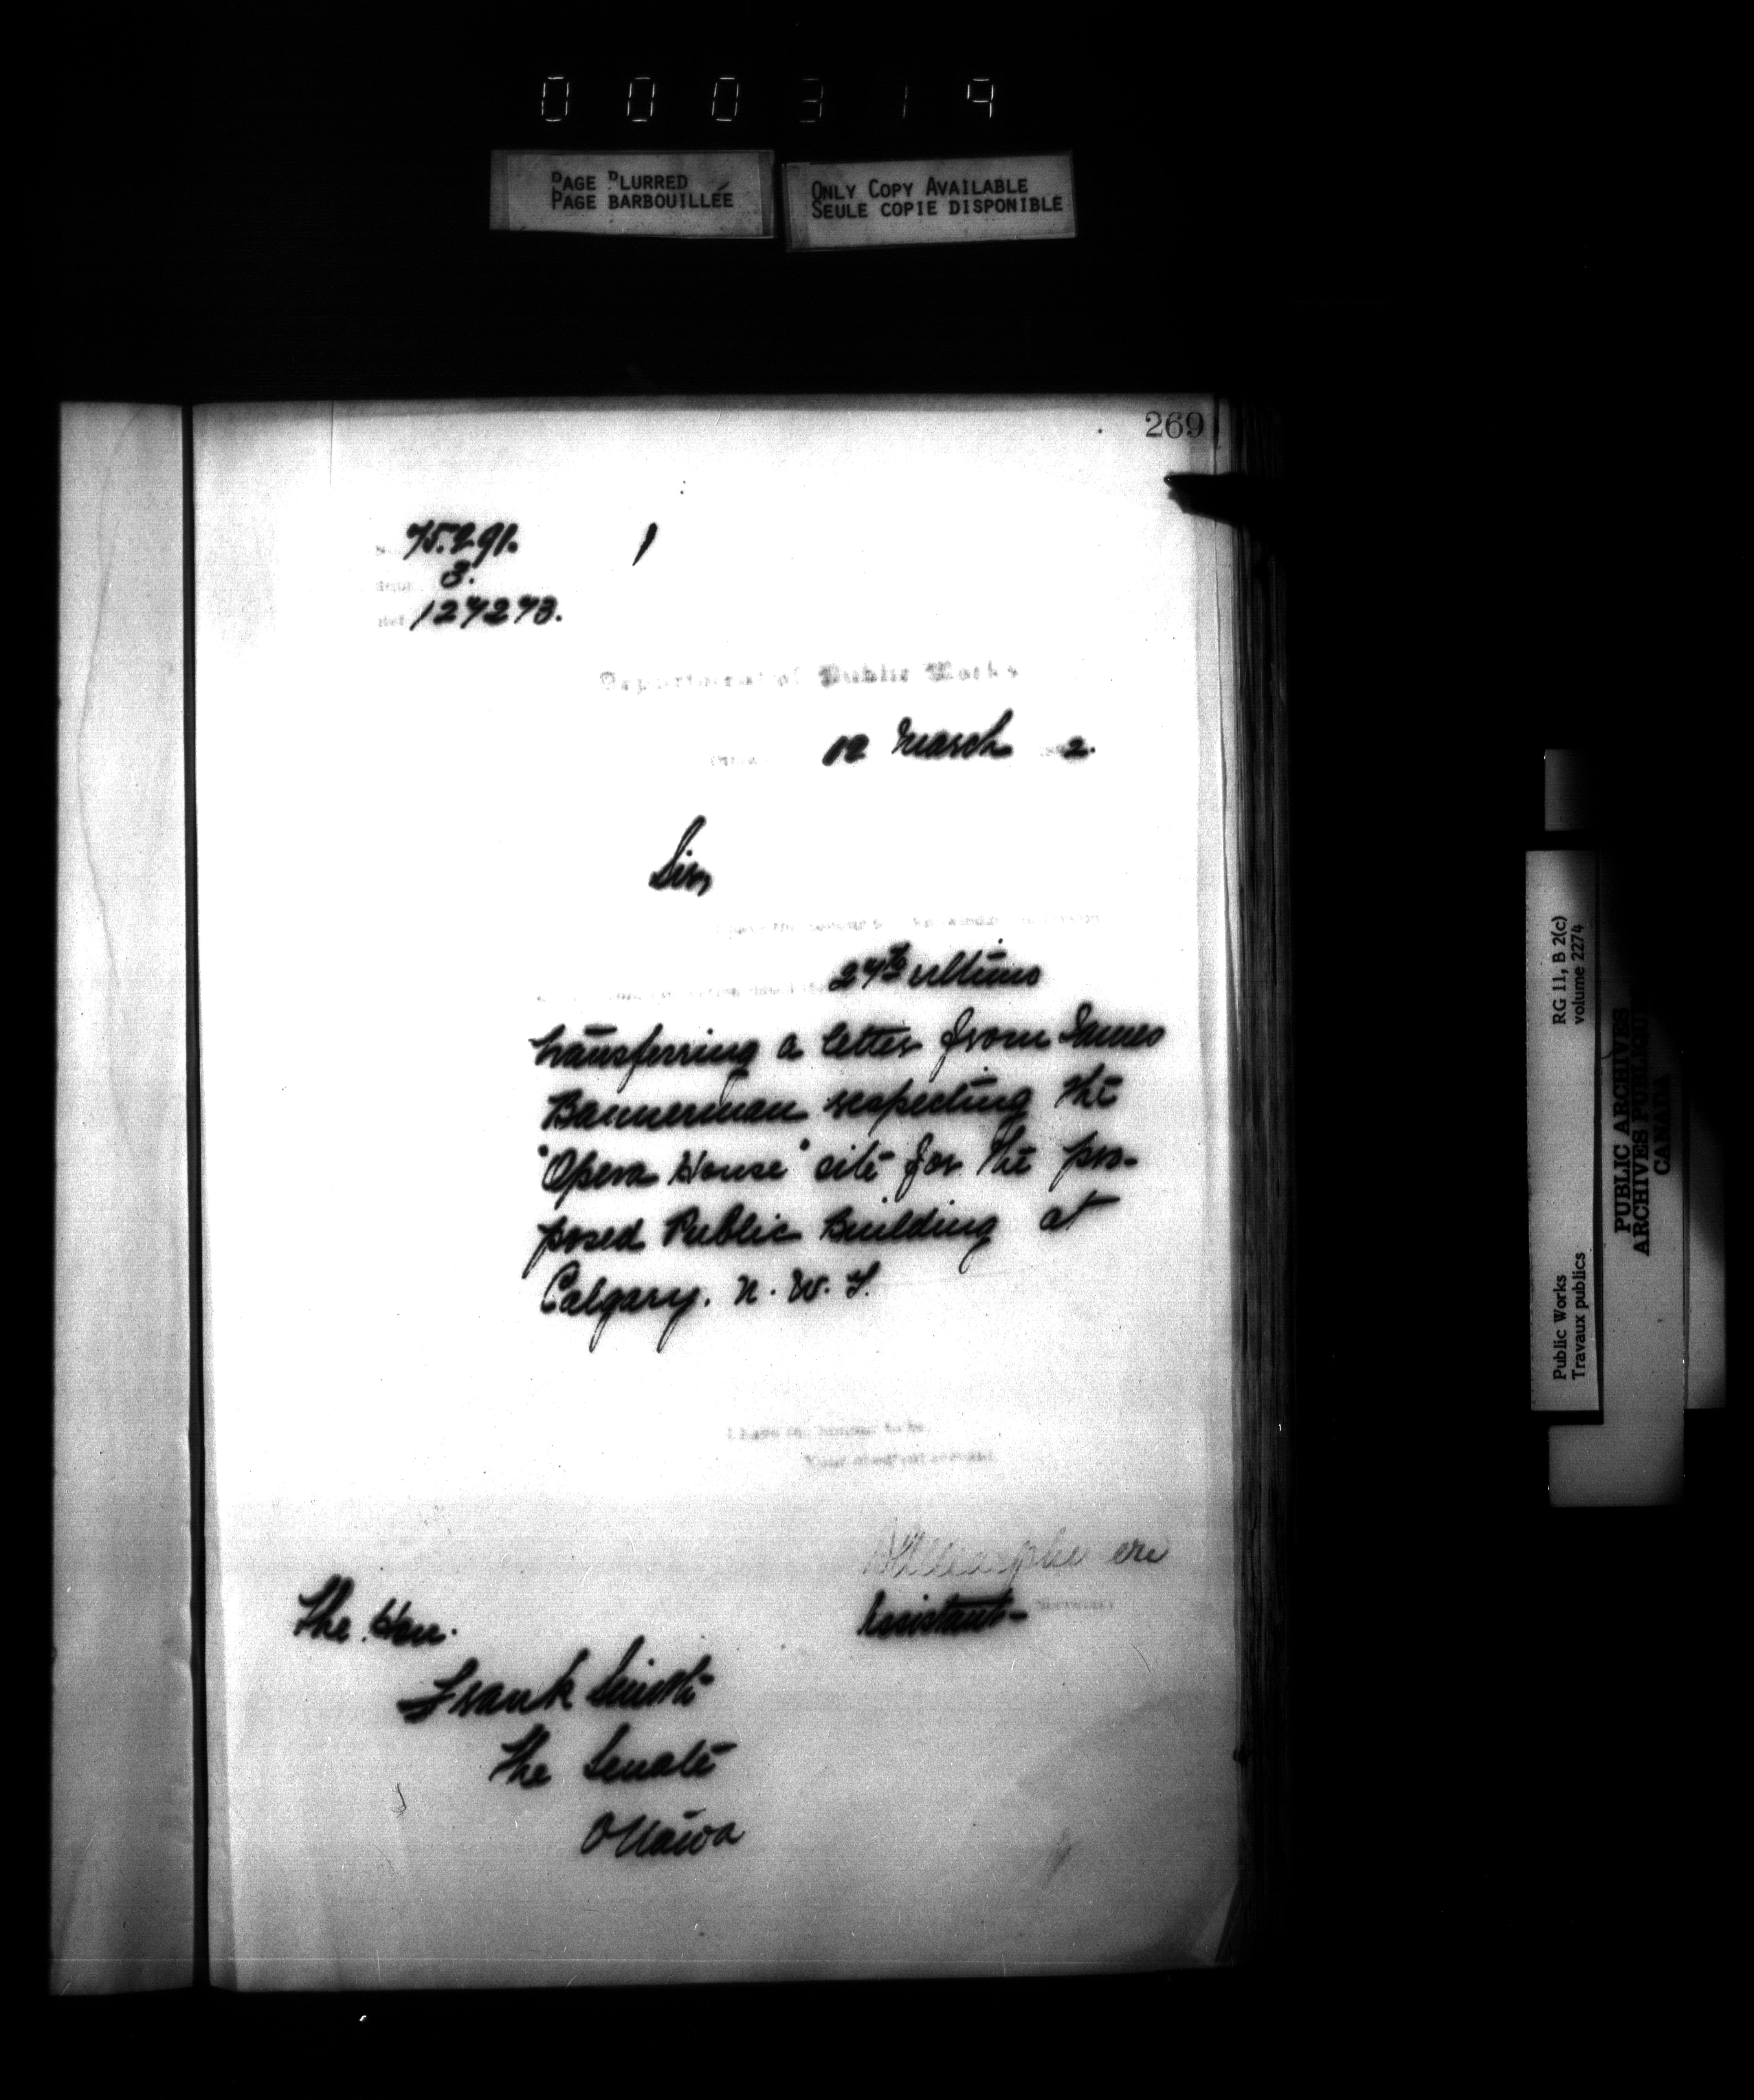 000319
PAGE BLURRED
PAGE BARBOUILLÉE
ONLY COPY AVAILABLE
SEULE COPIE DISPONIBLE
269
75.291.
3.
Ref. 127273.
Department of Public Works
12 March 2.
Sir,
I have the honour to
27th ultimo
transferring a letter from James
Bannerman respecting the
"Opera House" site for the pro-
posed Public Building at
Calgary. N. W. T.
I have the honour to be,
Your obedient servant
Assistant Secretary
The Hon.
Frank Smith
The Senate
Ottawa
RG 11, B 2(c)
volume 2274
Public Works
Travaux publics
PUBLIC ARCHIVES
ARCHIVES PUBLIQUES
CANADA